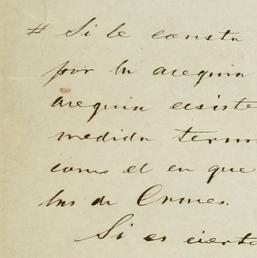 # Si le consta
por la acequia
acequia existe
medida term
como el en que
las de Cruces.
Si es cierto